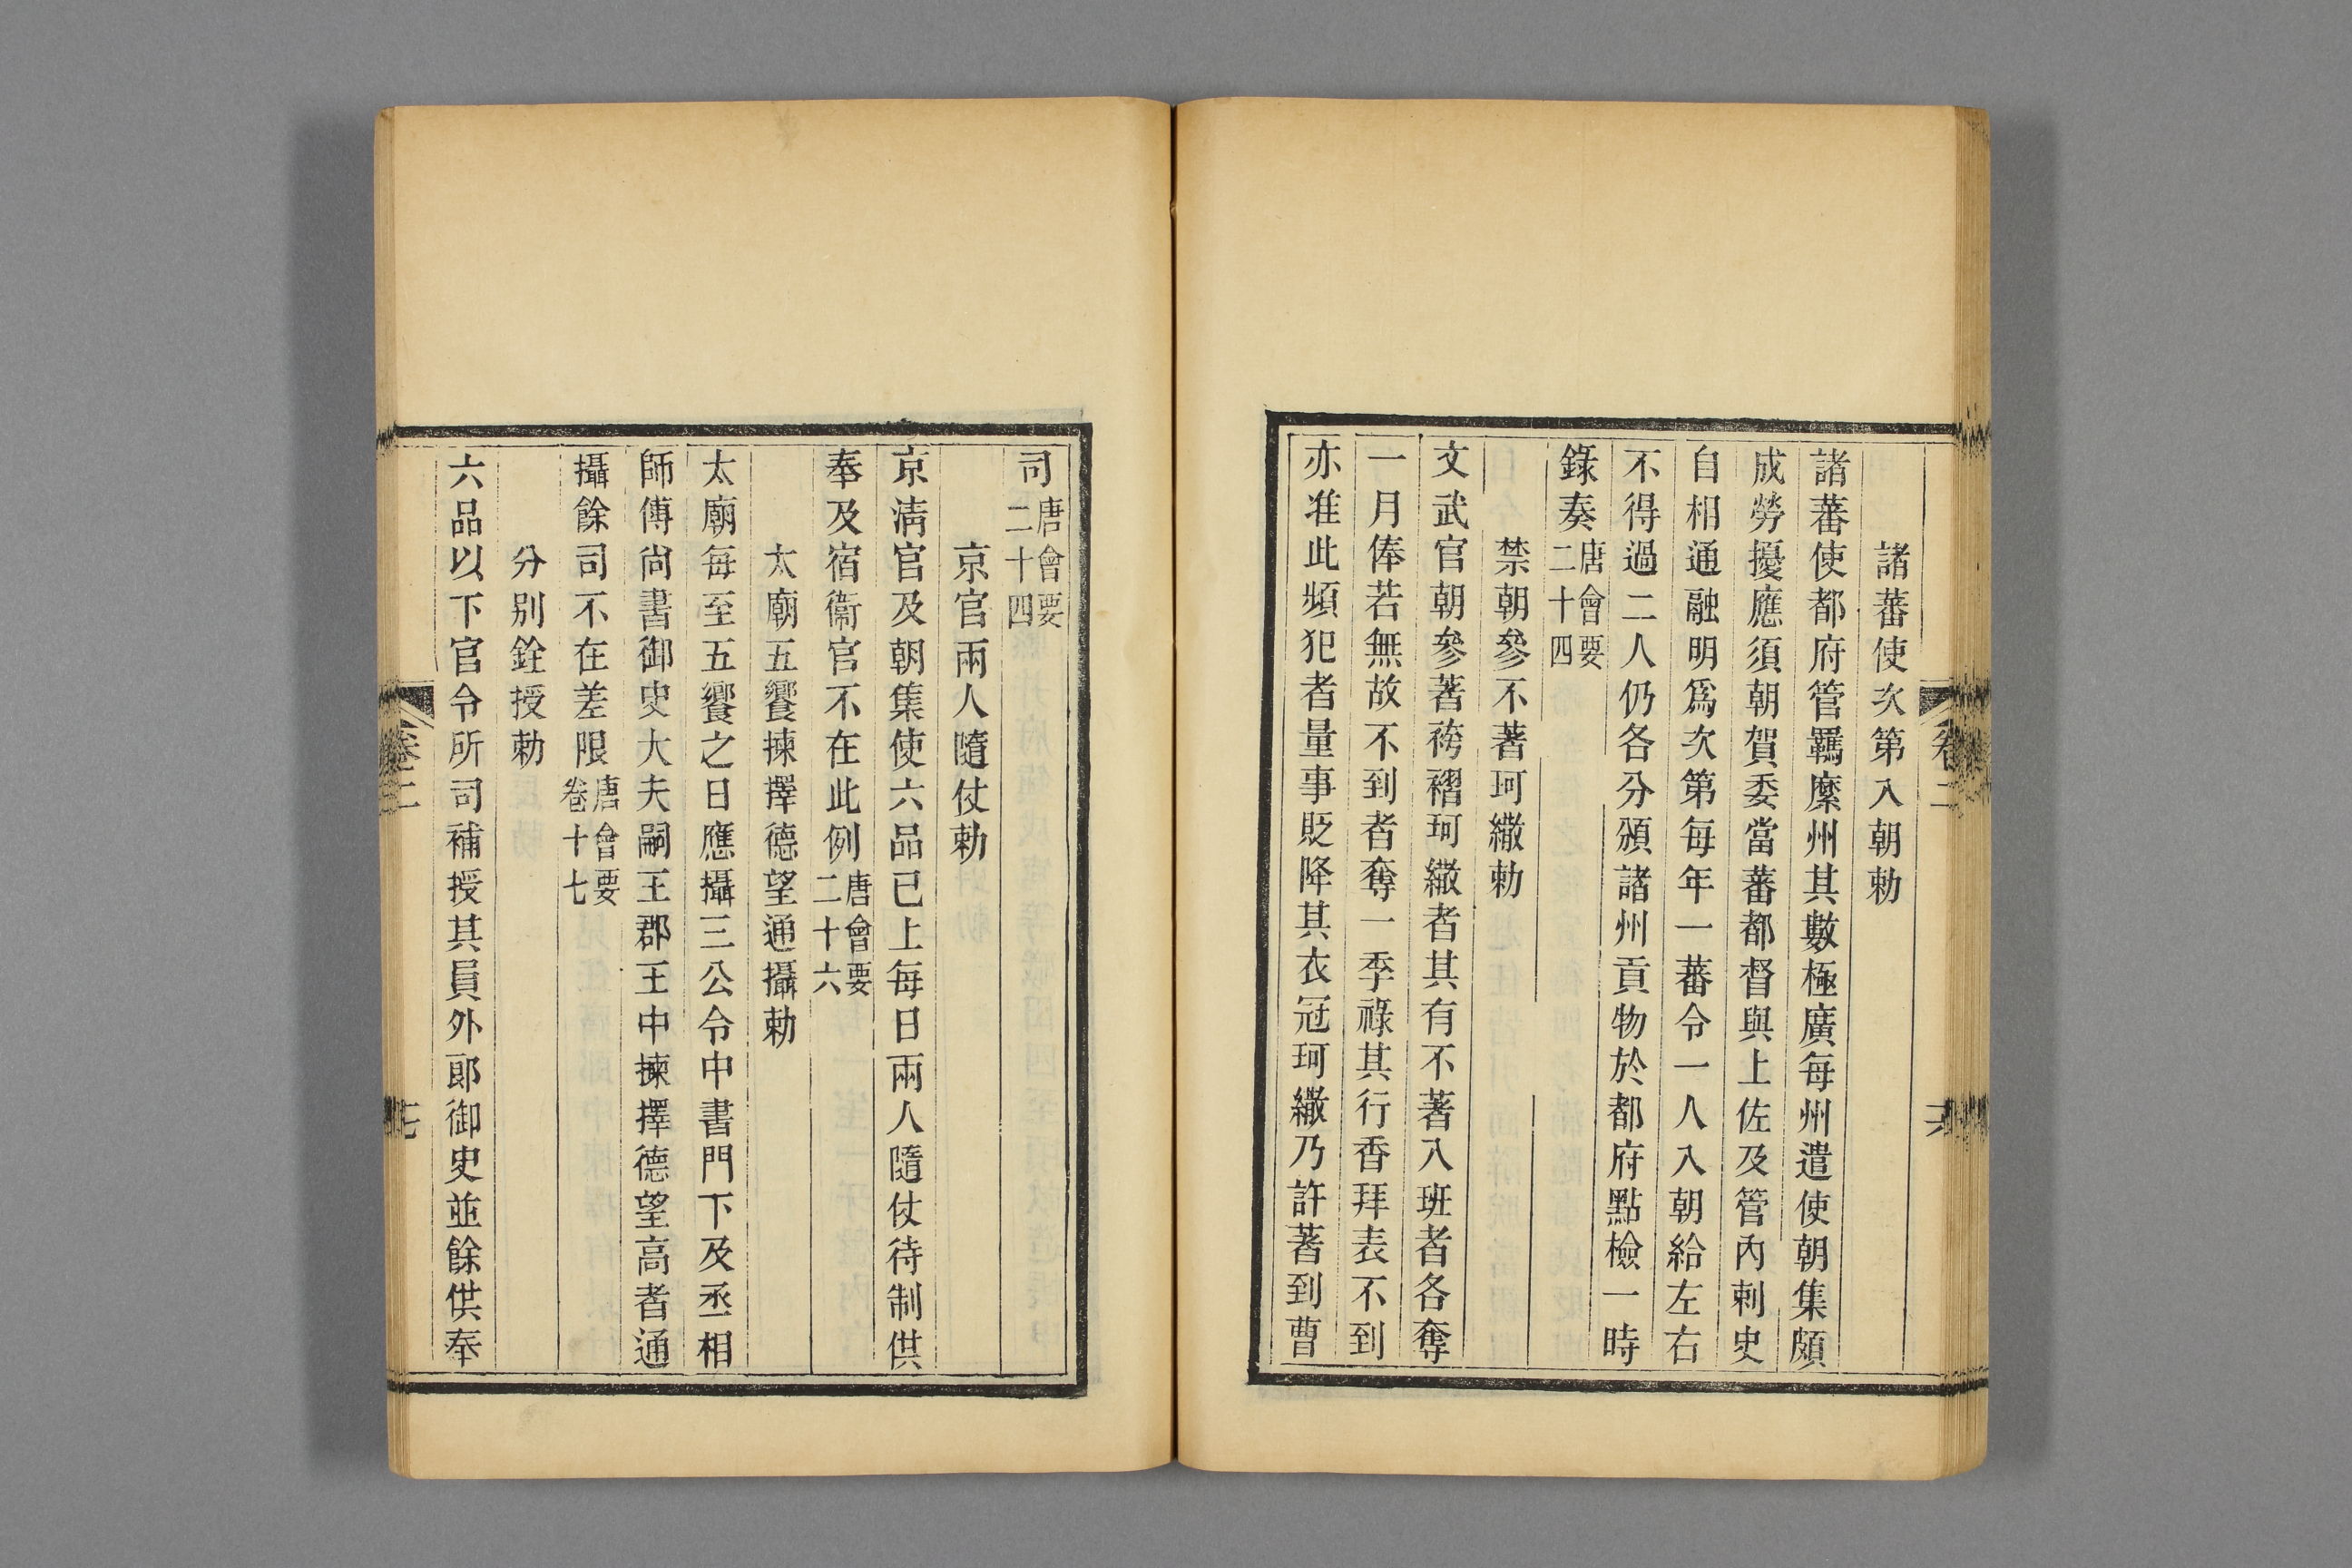 諸蕃使次第入朝勅
諸蕃使都府管羈縻州其數極廣每州遣使朝集頗
成勞擾應須朝賀委當蕃都督與上佐及管內刺史
自相通融明爲次第每年一蕃令一人入朝給左右
不得過二人仍各分頒諸州貢物於都府點檢一時
錄奏唐會要二十四
禁朝參不著珂繖勅
文武官朝參著袴褶珂繖者其有不著入班者各奪
一月俸若無故不到者奪一季祿其行香拜表不到
亦准此頻犯者量事貶降其衣冠珂繖乃許著到曹
司唐會要二十四
京官兩人隨仗勅
京淸官及朝集使六品已上每日兩人隨仗待制供
奉及宿衞官不在此例唐會要二十六
太廟五饗揀擇德望通攝勅
太廟每至五饗之日應攝三公令中書門下及丞相
師傅尙書御史大夫嗣王郡王中揀擇德望高者通
攝餘司不在差限唐會要卷十七
分別銓授勅
六品以下官令所司補授其員外郞御史並餘供奉
卷二